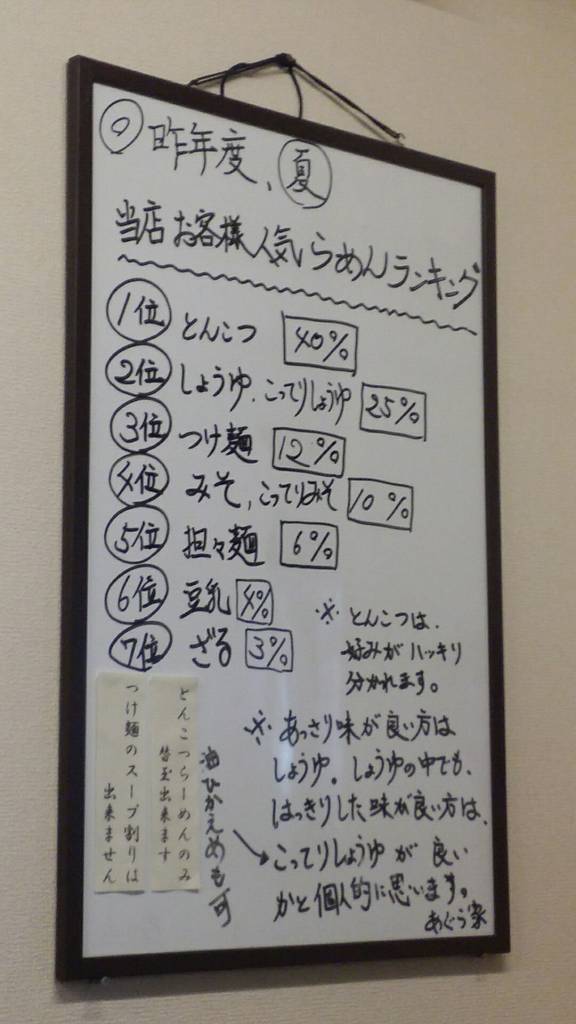 ◎昨年度、夏
当店お客様人気らめんランキング
1位 とんこつ 40%
2位 しょうゆ、こってりしょうゆ 25%
3位 つけ麺 12%
4位 みそ、こってりみそ 10%
5位 担々麺 6%
6位 豆乳 4%
7位 ざる 3%
※とんこつは、
好みがハッキリ
分かれます。
※あっさり味が良い方は
しょうゆ。しょうゆの中でも、
はっきりした味が良い方は、
こってりしょうゆが良い
かと個人的に思います。
あぐら家
油ひかえめも可
とんこつらーめんのみ
替玉出来ます
つけ麺のスープ割りは
出来ません